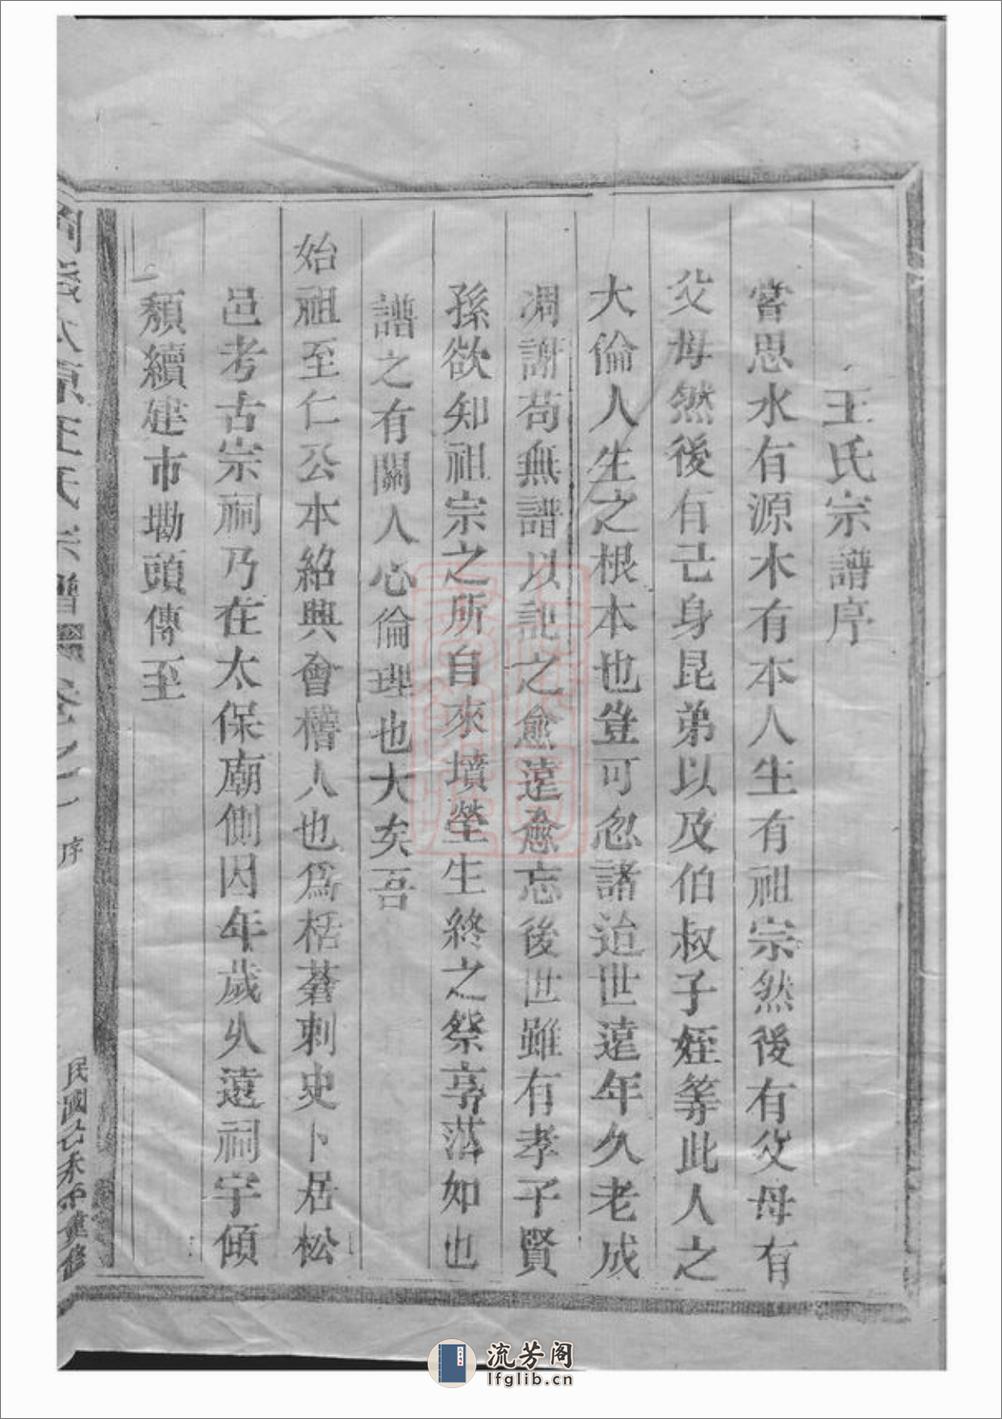 王氏宗譜序
嘗思水有源木有本人生有祖宗然後有父母有
父母然後有己身昆弟以及伯叔子姪等此人之
大倫人生之根本也豈可忽諸迨世遠年久老成
凋謝苟無譜以記之愈遠愈忘後世雖有孝子賢
孫欲知祖宗之所自來墳塋生終之祭享落如也
譜之有關人心倫理也大矣吾
始祖至仁公本紹興會稽人也爲栝蒼刺史卜居松
邑考古宗祠乃在太保廟側因年歲久遠祠宇傾
頹續建市墈頭傳至
太原王氏宗譜 卷之一 序
民國乙未年重修
流芳阁
lfglib.cn